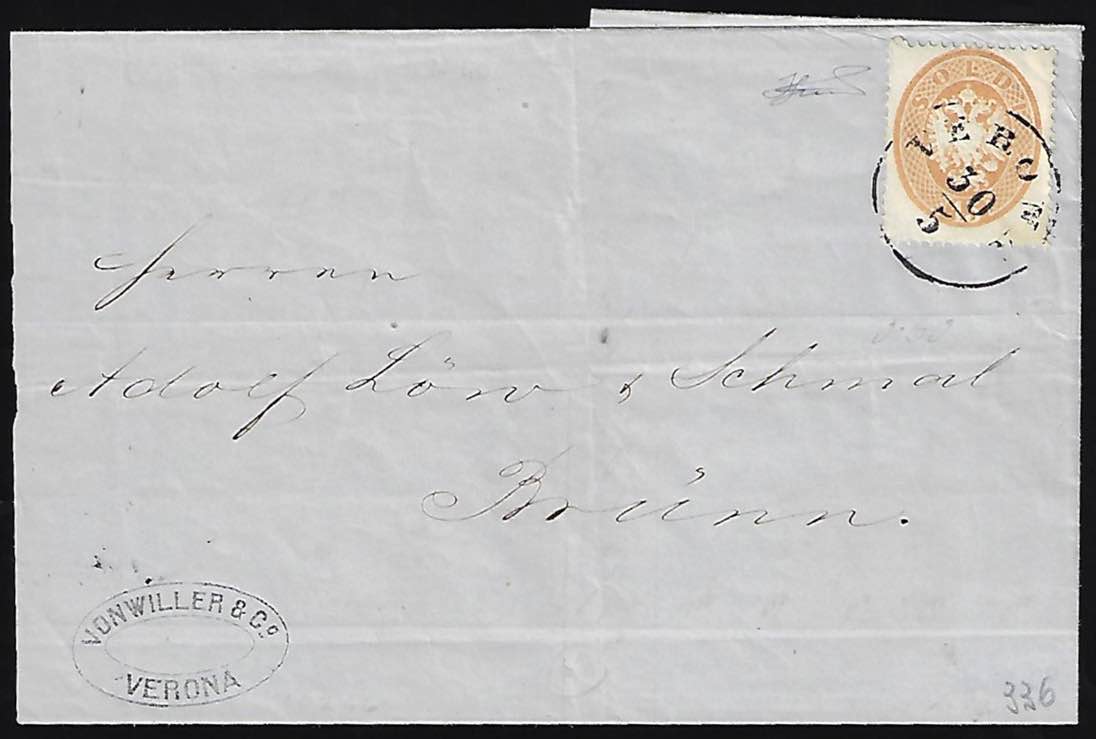 SOLDI
VERONA
30
5
Herren
Adolf Löw & Schmal
Brünn.
VONWILLER & Co.
VERONA
336